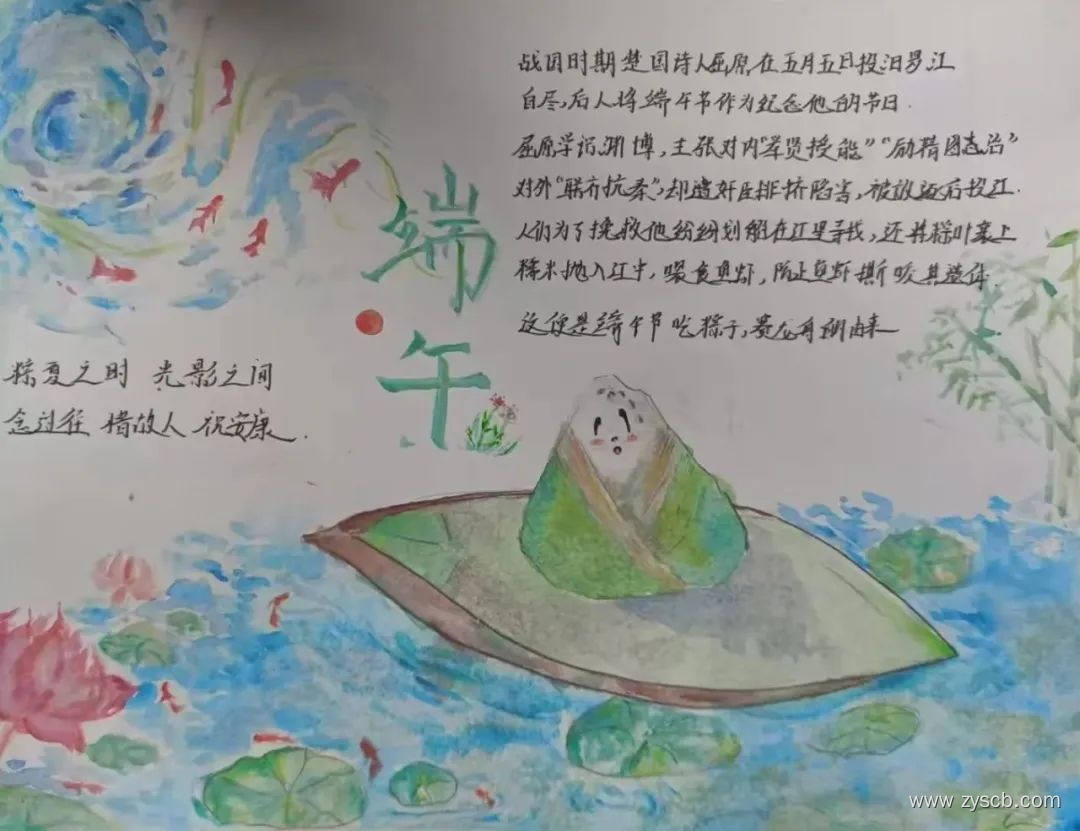 战国时期楚国诗人屈原,在五月五日投汨罗江
自尽,后人将端午节作为纪念他的节日.
屈原学识渊博,主张对内“举贤授能”“励精图志治”
对外“联齐抗秦”,却遭奸臣排挤陷害,被放逐后投江.
人们为了挽救他纷纷划船在江里寻找,还用粽叶裹上
糯米抛入江中,喂食鱼虾,防止鱼虾撕咬其遗体.
这便是端午节吃粽子,赛龙舟的由来
端午
粽夏之时 光影之间
念过往 惜故人 祝安康.
www.zyscb.com